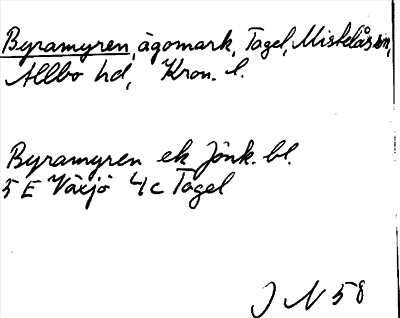 Byramyren, ägomark, Tagel, Mistelås sn,
Allbo hd, Kron. l.
Byramyren ek Jönk. bl.
5 E Växjö 4c Tagel
J N 58